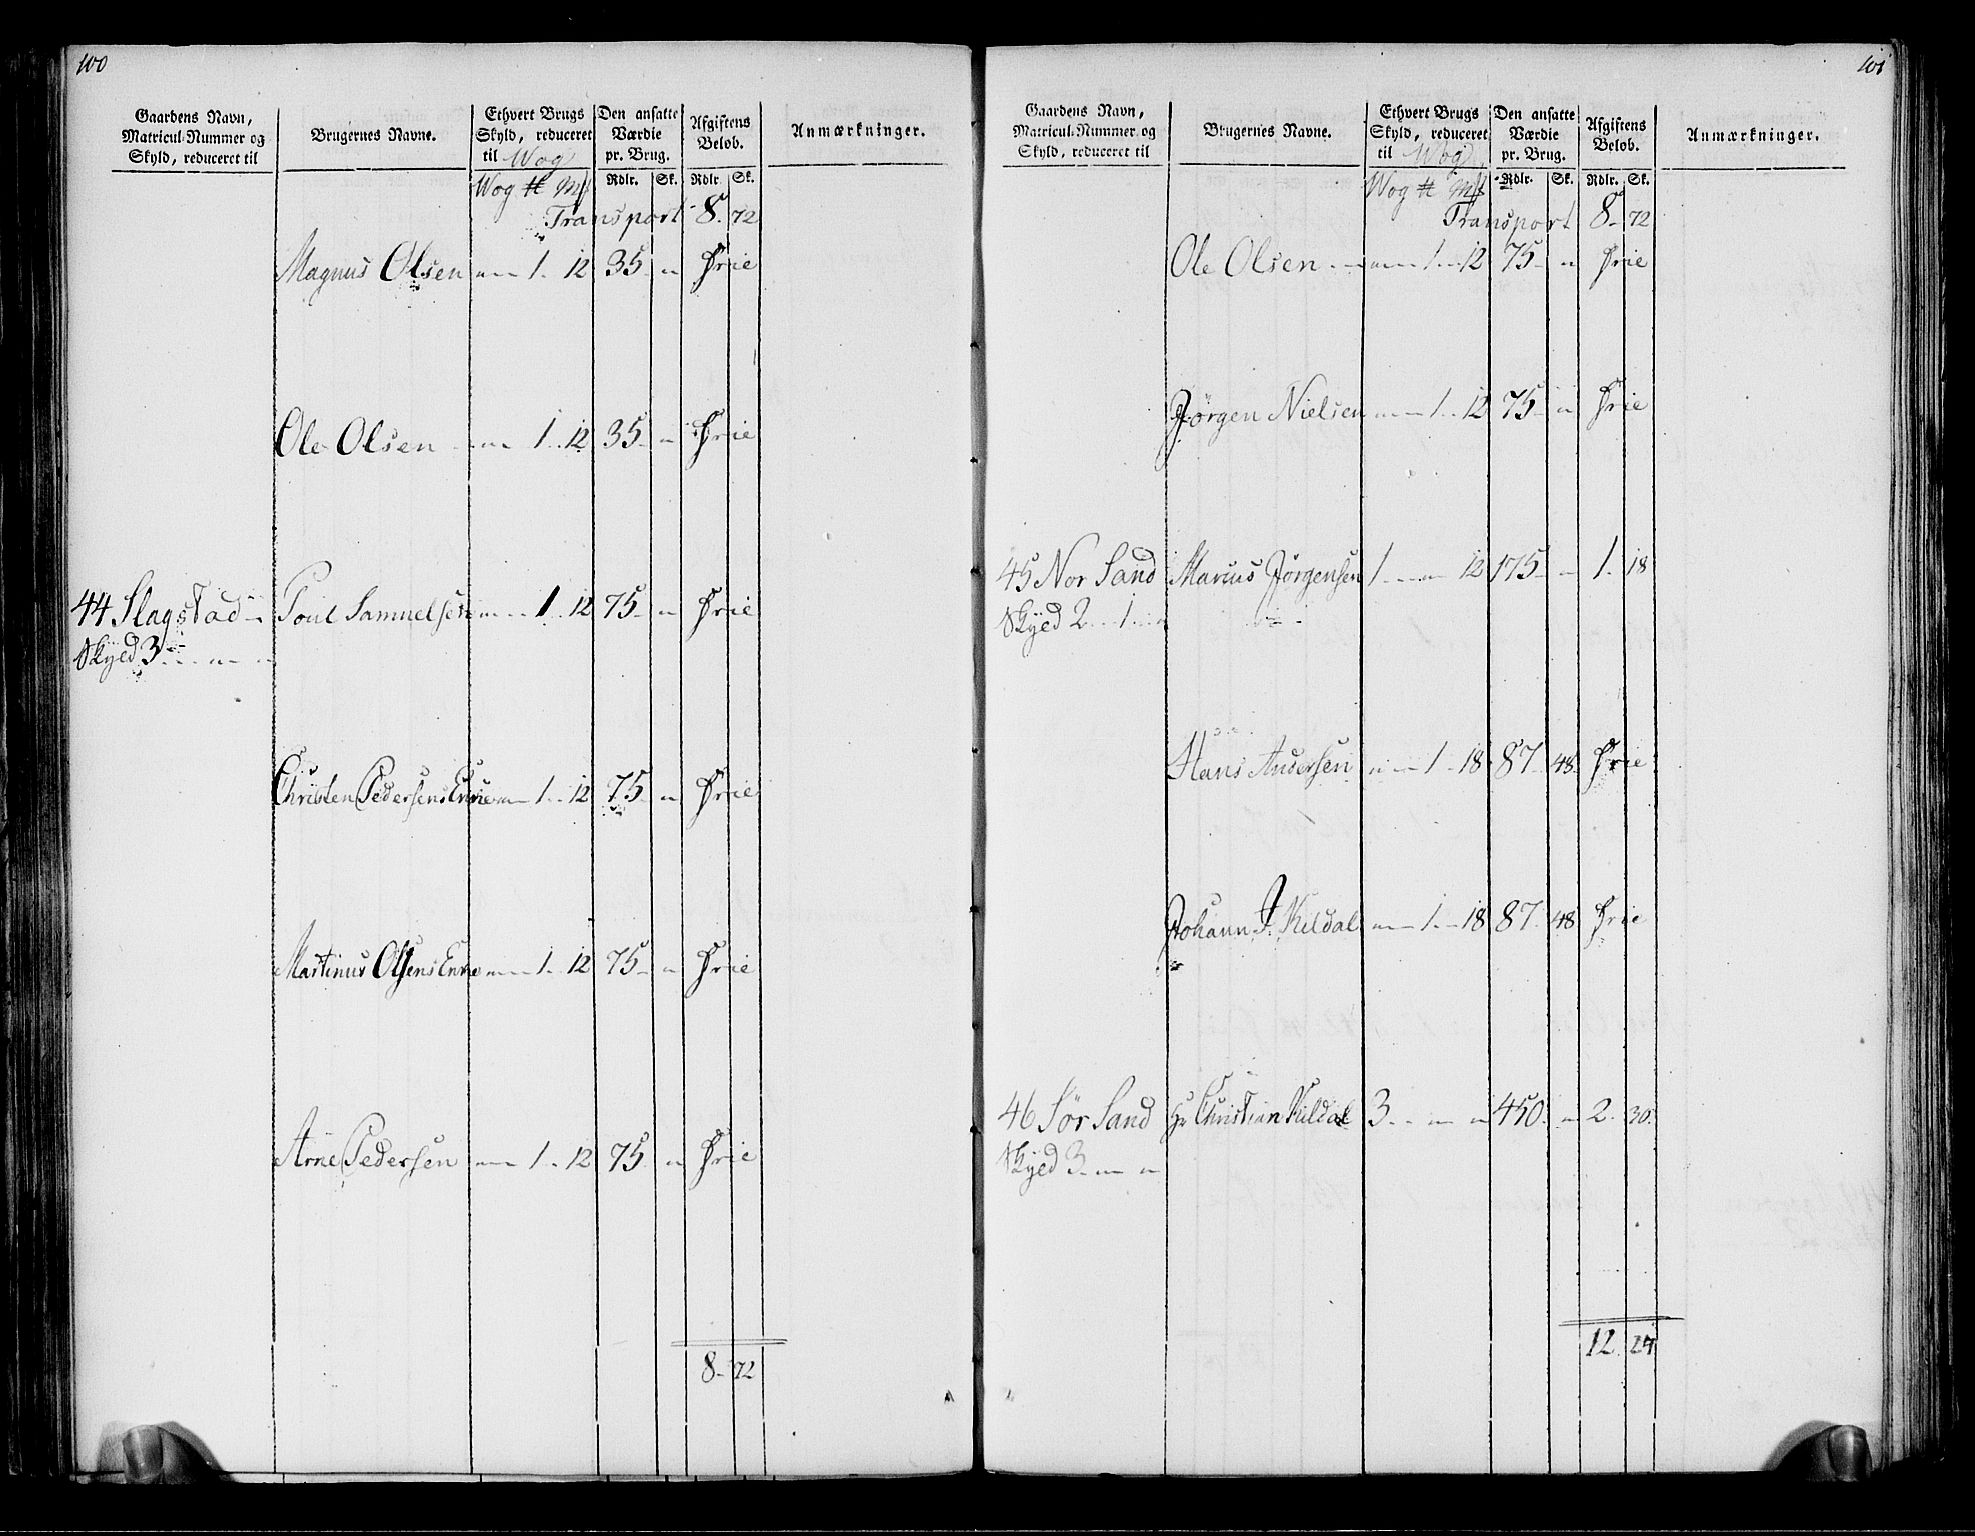 100
Gaardens Navn,
Matricul-Nummer og
Skyld, reduceret til
Brugernes Navne.
Ethvert Brugs
Skyld, reduceret
til Wog
Den ansatte
Værdie
pr. Brug.
Afgiftens
Beløb.
Anmærkninger.
Wog ℔ Mk Rdlr. Sk. Rdlr. Sk.
Transport 8. 72
Magnus Olsen „ 1. 12 35 „ Frie
Ole Olsen „ 1. 12 35 „ Frie
44 Slagstad Poul Samuelsen „ 1. 12 75 „ Frie
Skyed 3 „ „
Christen Pedersens Enke „ 1. 12 75 „ Frie
Martinus Olsens Enke „ 1. 12 75 „ Frie
Arne Pedersen „ 1. 12 75 „ Frie
8. 72
101
Gaardens Navn,
Matricul-Nummer og
Skyld, reduceret til
Brugernes Navne.
Ethvert Brugs
Skyld, reduceret
til Wog
Den ansatte
Værdie
pr. Brug.
Afgiftens
Beløb.
Anmærkninger.
Wog ℔ Mk Rdlr. Sk. Rdlr. Sk.
Transport 8. 72
Ole Olsen „ 1. 12 75 „ Frie
Jørgen Nielsen „ 1. 12 75 „ Frie
45 Nor Sand Marius Jørgensen 1 „ 12 175 „ 1. 18
Skyed 2 1 „
Hans Andersen „ 1. 18 87. 48 Frie
Johann J. Kildal „ 1. 18 87. 48 Frie
46 Sør Sand Hr Christian Kildal 3. „ „ 450. „ 2. 30.
Skyed 3. „ „
12. 24